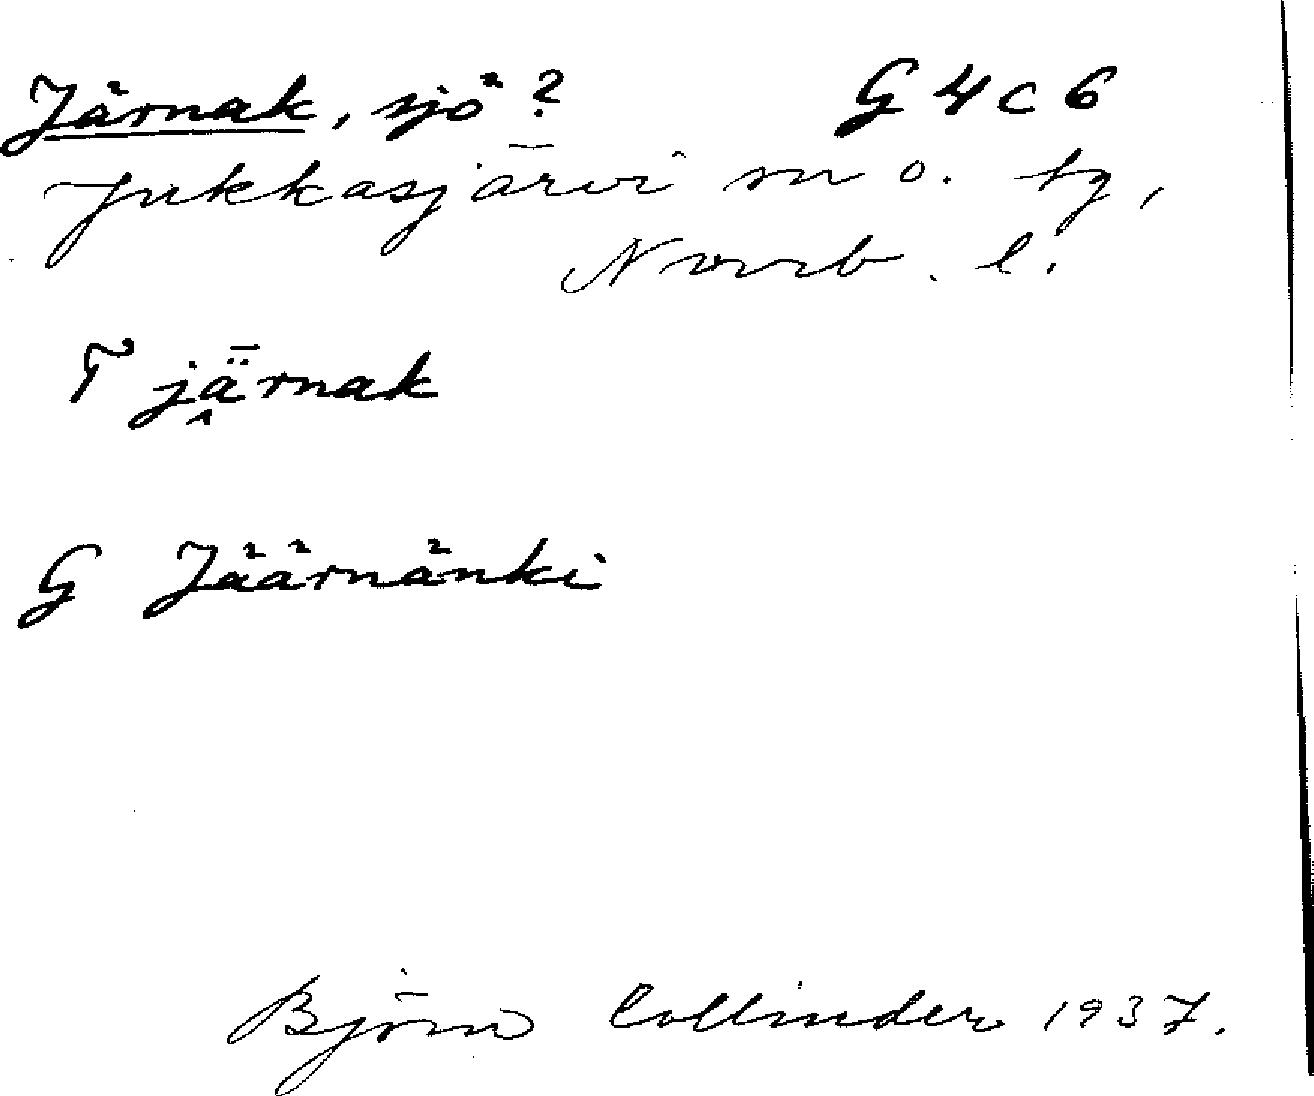 Järnak, sjö?   G 4 c 6
Jukkasjärvi sn o. tg,
Norrb. l.
T jǟ̭rnak
G Jäärnänki
Björn Collinder 1937.